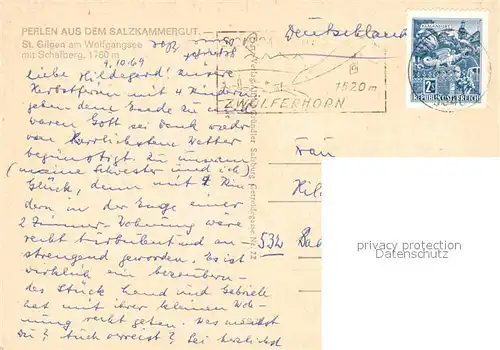 PERLEN AUS DEM SALZKAMMERGUT.
St. Gilgen am Wolfgangsee
mit Schafberg, 1780 m
9.10.69
Deutschland
Liebe Hildegard! Unsere
Herbstferien mit 4 Kindern
gehen dem Ende zu
waren Gott sei Dank wieder
von herrlichstem Wetter
begünstigt. Zu unserem
(meine Schwester und ich)
Glück, denn mit 4 Kin
dern in der Enge einer
2 Zimmer-Wohnung wäre
recht turbulent und an-
strengend geworden. Es ist
wirklich ein bezaubern-
des Stück Land und Gabriele
hat mit ihrer kleinen Woh-
nung recht gehen. Was machst
Du? Auch verreist? Sei herzlichst
1520 m
ZWÖLFERHORN
2S
REPUBLIK ÖSTERREICH
Frau
Hil
532 Bad
privacy protection
Datenschutz